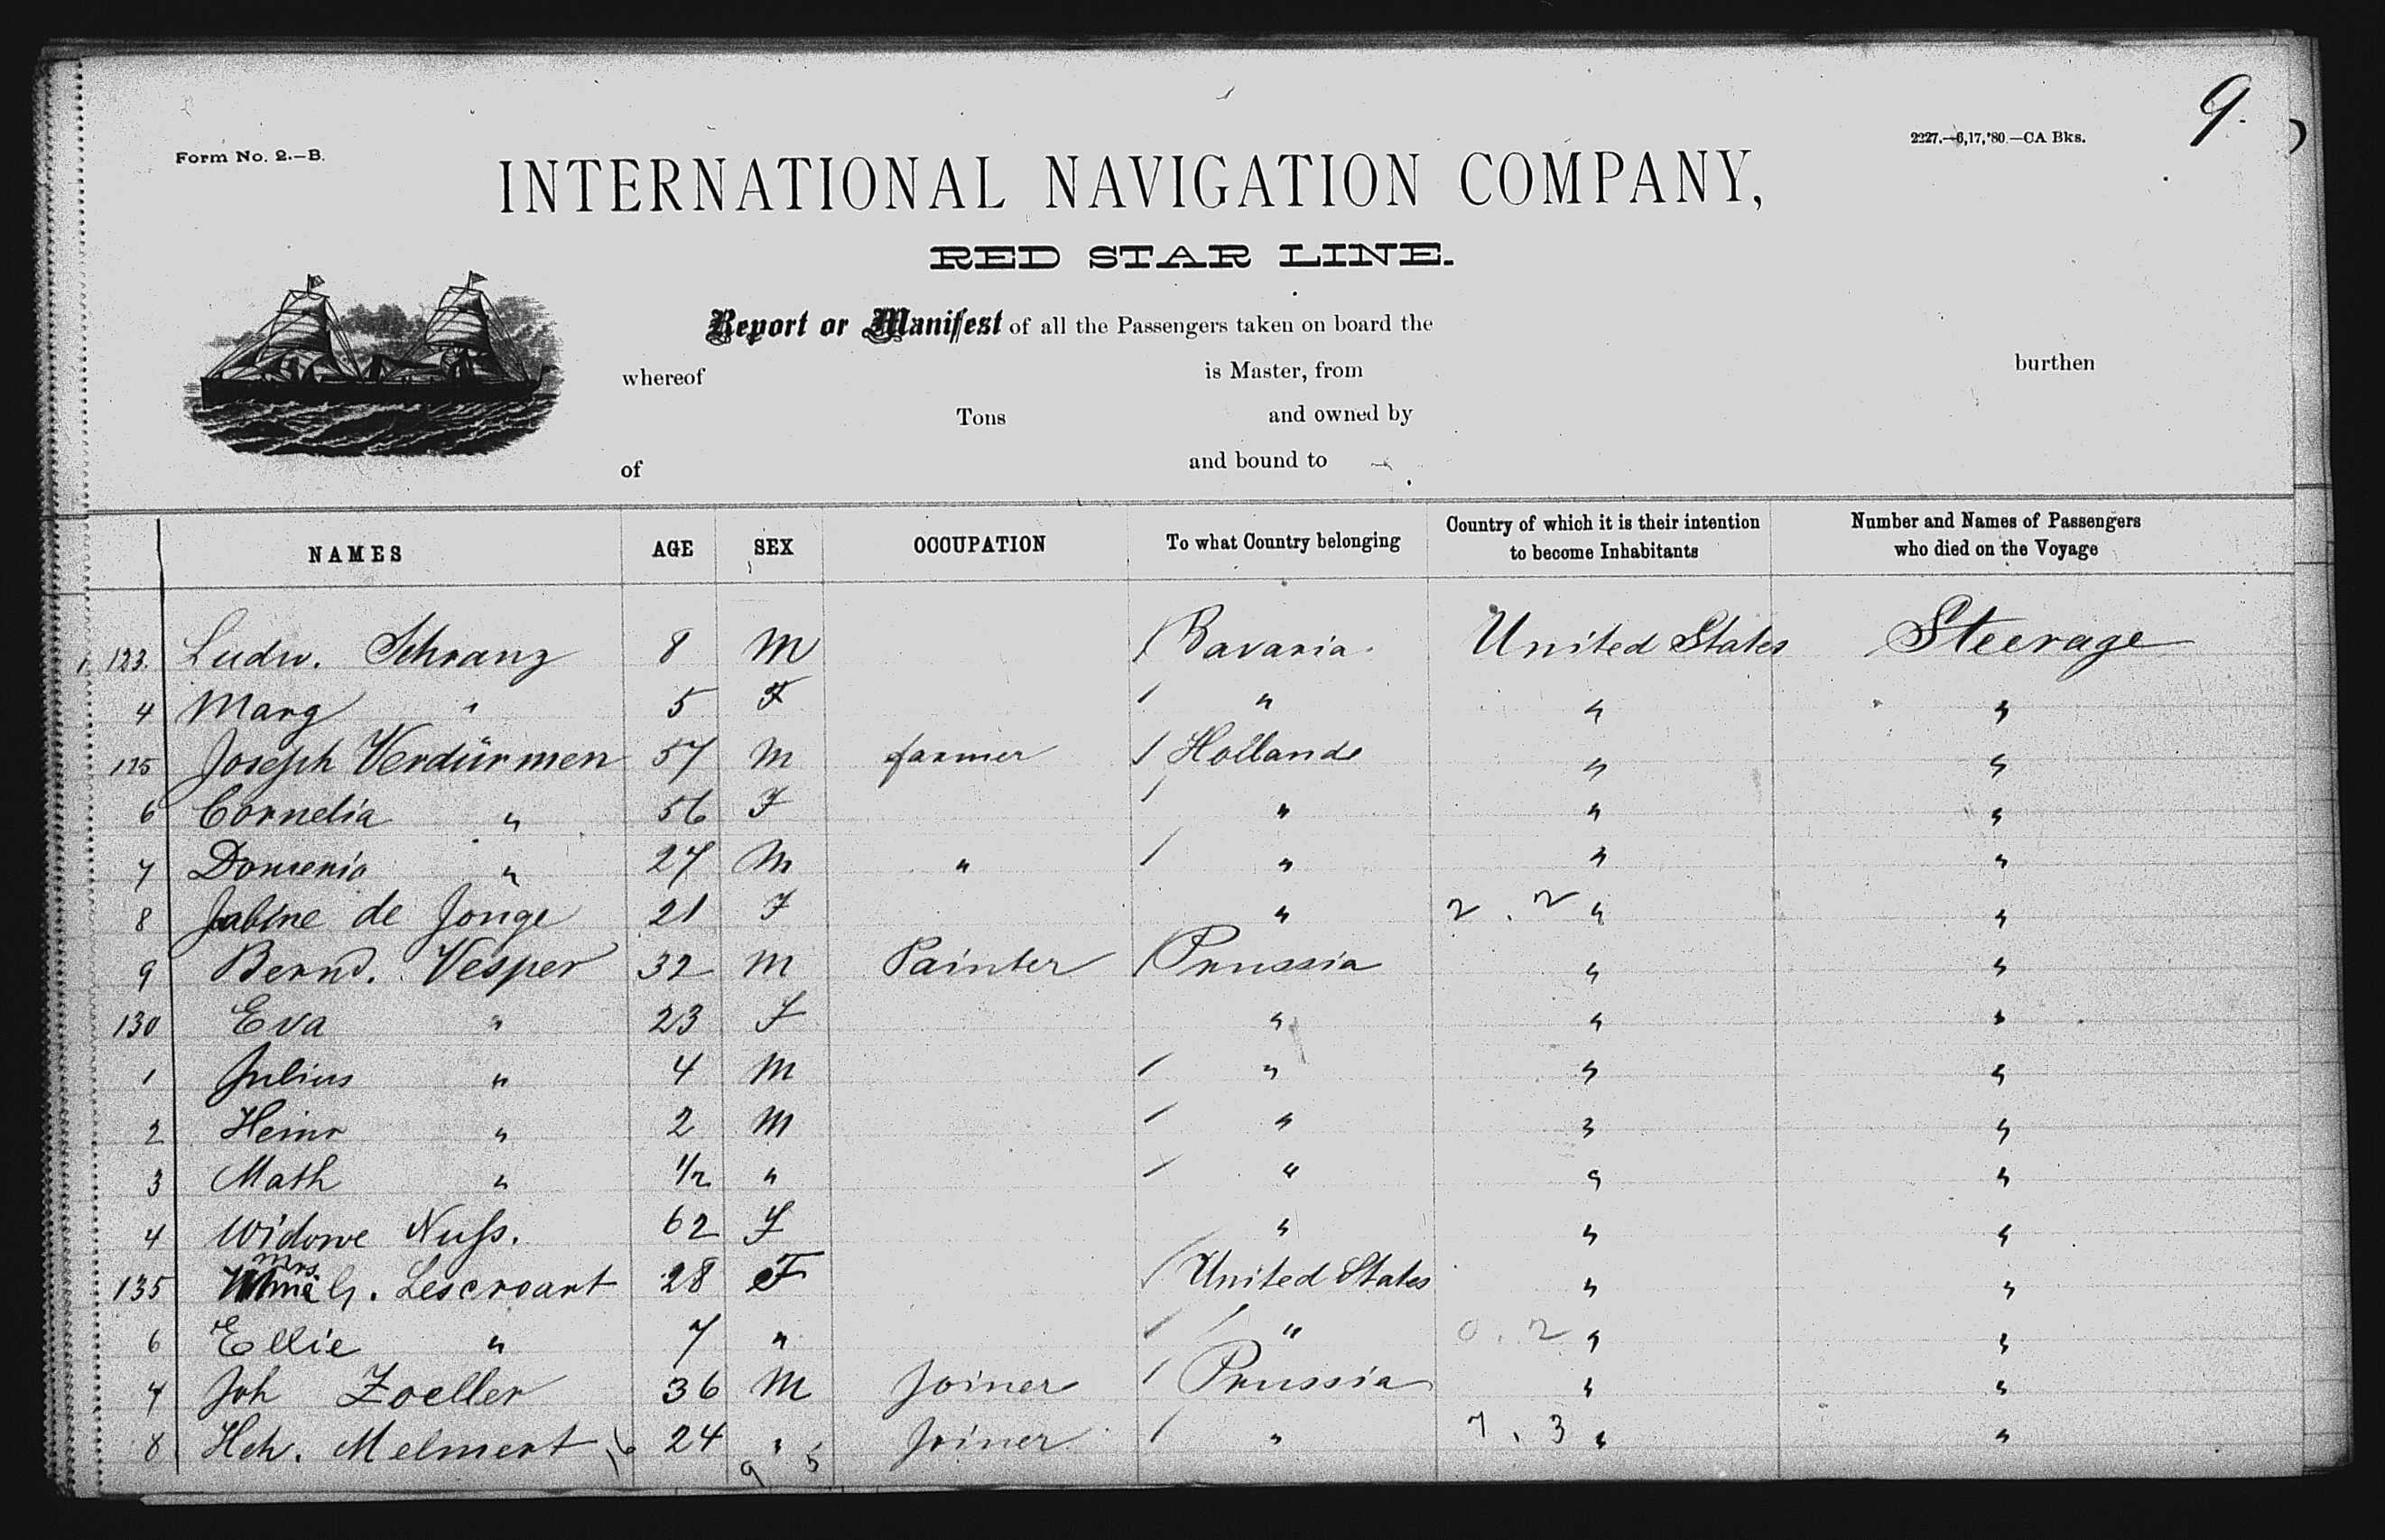 9.
Form No. 2.—B.
2227.—6,17,'80.—CA Bks.
INTERNATIONAL NAVIGATION COMPANY,
RED STAR LINE.
Report or Manifest of all the Passengers taken on board the
whereof is Master, from burthen
Tons and owned by
of and bound to
NAMES AGE SEX OCCUPATION To what Country belonging Country of which it is their intention to become Inhabitants Number and Names of Passengers who died on the Voyage
123. Ludw. Schranz 8 M / Bavaria. United States Steerage
4 Marg " 5 F / " " "
125 Joseph Verdürmen 57 M farmer / Hollande " "
6 Cornelia " 56 F / " " "
7 " 27 M " / " " "
8 de Jonge 21 F " 2 . 2 " "
9 Bernd. Vesper 32 M Painter / Prussia " "
130 Eva " 23 F " " "
1 Julius " 4 M / " " "
2 Heinr " 2 M / " " "
3 Math " 1/2 " / " " "
4 Widowe Nuſs. 62 F " " "
135 Mrs G. Lescroart 28 F / United States " "
6 Ellie " 7 " / / " 0 . 2 " "
7 Joh Zoeller 36 M Joiner / Prussia " "
8 Hch. Melmert 16 24 " Joiner / " 7 . 3 " "
9 5